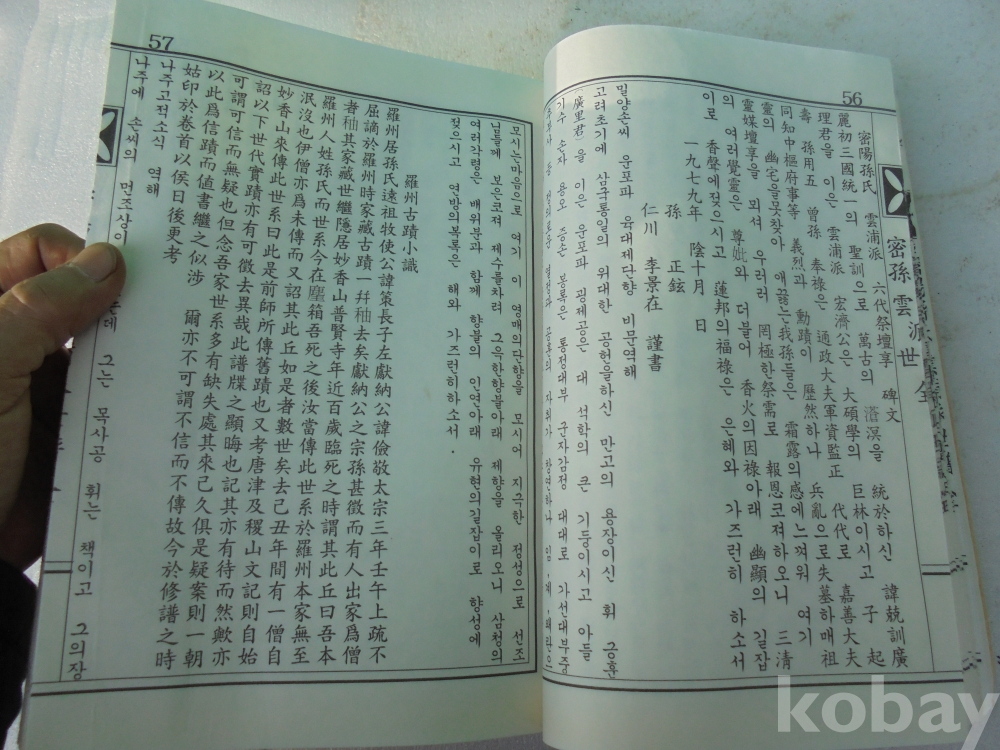 56
密陽孫氏 雲浦派 六代祭壇享 碑文
麗初三國統一의 聖訓으로 萬古의 滄溟을 統於하신 諱兢訓廣
理君을 이은 雲浦派 宏濟公은 大碩學의 巨林이시고 子 起
壽 孫用五 曾孫 奉祿은 通政大夫軍資監正 代代로 嘉善大夫
同知中樞府事等 義烈과 動蹟이 歷然하나 兵亂으로失墓하매祖
靈의 幽宅을못찾아 애끓는我孫들은 霜露의感에느껴워 여기
靈媒壇享을 뫼셔 우러러 罔極한祭需로 報恩코져하오니 三清
의 여러覺靈은 尊妣와 더불어 香火의因祿아래 幽顯의 길잡
이로 香聲에젖으시고 蓮邦의福祿은 은혜와 가즈런히 하소서
一九七九年 陰十月 日
孫 正鉉
仁川 李景在 謹書
밀양손씨 운포파 육대제단향 비문역해
고려초기에 삼국통일의 위대한 공헌을하신 만고의 용장이신 휘 긍훈
(廣里君)을 이은 운포파 굉제공은 대 석학의 큰 기둥이시고 아들
기수 손자 용오 증손 봉록은 통정대부 군자감정 대대로 가선대부중
57
모시는마음으로 여기 이 영매의단향을 모시어 지극한 정성으로 선조
님들께 보은코져 제수를차려 그윽한향불아래 제향을 올리오니 삼청의
여러각령은 배위분과 함께 향불의 인연아래 유현의길잡이로 향성에
젖으시고 연방의복록은 해와 가즈런히하소서.
羅州古蹟小識
羅州居孫氏遠祖牧使公諱策長子左獻納公諱儉敬太宗三年壬午上疏不
屈謫於羅州時家藏古蹟一幷秞去矣獻納公之宗孫甚微而有人出家爲僧
者秞其家藏世繼隱居妙香山普賢寺年近百歲臨死之時謂其此丘曰吾本
羅州人姓孫氏而世系今在塵箱吾死之後汝當傳此世系於羅州本家無至
泯沒也伊僧亦爲未傳而又詔其此丘如是者數世矣去己丑年間有一僧自
妙香山來傳此世系曰此是前師所傳舊蹟也又考唐津及稷山文記則自始
詔以下世代實蹟亦有可徵去異哉此譜牒之顯晦也記其亦有待而然歟亦
可謂可信而無疑也但念吾家世系多有缺失處其來己久俱是疑案則一朝
以此爲信蹟而値書繼之似涉 爾亦不可謂不信而不傳故今於修譜之時
姑印於卷首以俟日後更考
나주고적소식 역해
나주에 손씨의 먼조상이 그는 목사공 휘는 책이고 그의장
kobay